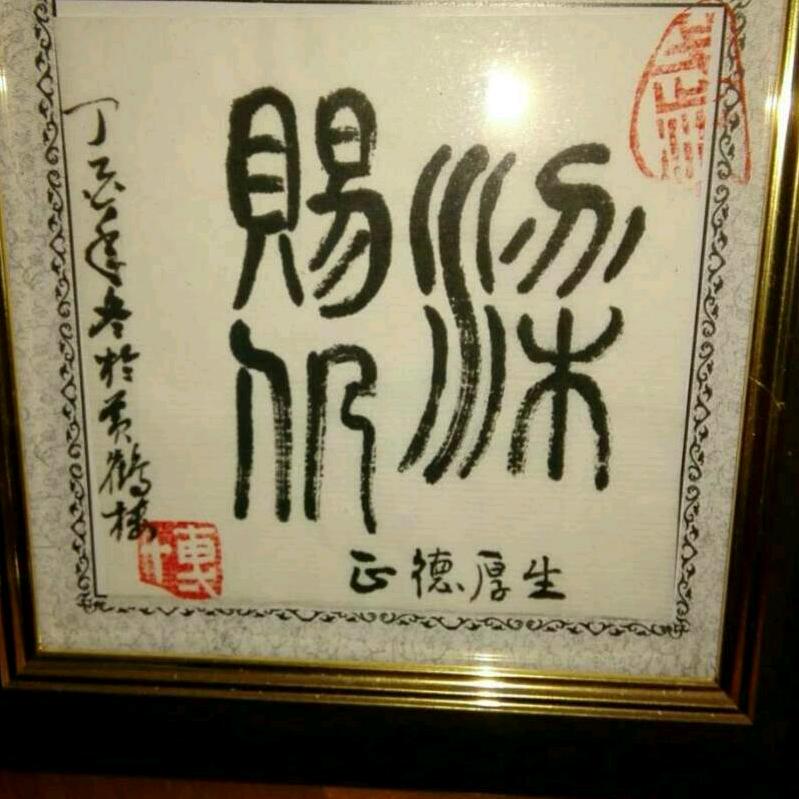 梁賜仍
正德厚生
丁亥年冬於黃鶴樓